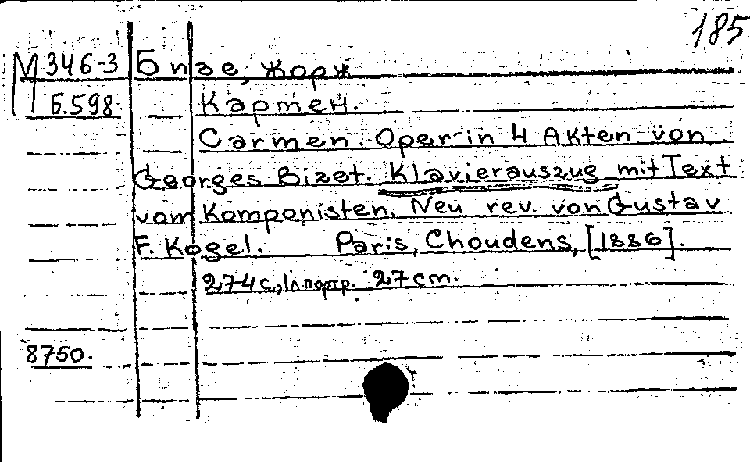 185
М 346-3 Бизе, Жорж
Б.598. Кармен.
Carmen. Oper in 4 Akten von
Georges Bizet. Klavierauszug mit Text
vom Komponisten. Neu rev. von Gustav
F. Kogel. Paris, Choudens, [1886].
274 с., 1 л. портр. 27 cm.
8750.